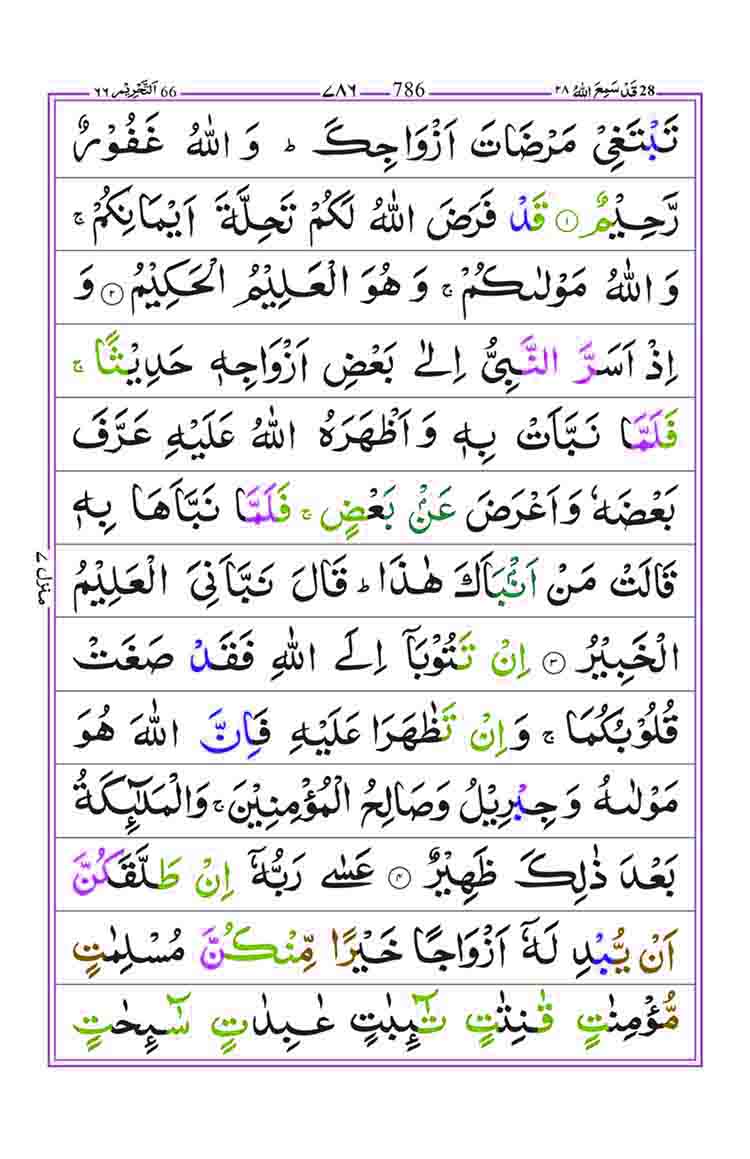 28 قَدْ سَمِعَ اللّٰهُ ٢٨ 786 ٧٨٦ 66 اَلتَّحْرِيْم ٦٦
تَبْتَغِيْ مَرْضَاتَ اَزْوَاجِكَ ؕ وَ اللّٰهُ غَفُوْرٌ
رَّحِيْمٌ ۝١ قَدْ فَرَضَ اللّٰهُ لَكُمْ تَحِلَّةَ اَيْمَانِكُمْ ۚ
وَ اللّٰهُ مَوْلٰىكُمْ ۚ وَ هُوَ الْعَلِيْمُ الْحَكِيْمُ ۝٢ وَ
اِذْ اَسَرَّ النَّبِيُّ اِلٰى بَعْضِ اَزْوَاجِهٖ حَدِيْثًا ۚ
فَلَمَّا نَبَّاَتْ بِهٖ وَ اَظْهَرَهُ اللّٰهُ عَلَيْهِ عَرَّفَ
بَعْضَهٗ وَ اَعْرَضَ عَنْۢ بَعْضٍ ۚ فَلَمَّا نَبَّاَهَا بِهٖ
قَالَتْ مَنْ اَنْۢبَاَكَ هٰذَا ؕ قَالَ نَبَّاَنِيَ الْعَلِيْمُ
الْخَبِيْرُ ۝٣ اِنْ تَتُوْبَاۤ اِلَى اللّٰهِ فَقَدْ صَغَتْ
قُلُوْبُكُمَا ۚ وَ اِنْ تَظٰهَرَا عَلَيْهِ فَاِنَّ اللّٰهَ هُوَ
مَوْلٰىهُ وَ جِبْرِيْلُ وَ صَالِحُ الْمُؤْمِنِيْنَ ۚ وَ الْمَلٰٓئِكَةُ
بَعْدَ ذٰلِكَ ظَهِيْرٌ ۝٤ عَسٰى رَبُّهٗۤ اِنْ طَلَّقَكُنَّ
اَنْ يُّبْدِ لَهٗۤ اَزْوَاجًا خَيْرًا مِّنْكُنَّ مُسْلِمٰتٍ
مُّؤْمِنٰتٍ قٰنِتٰتٍ تٰٓئِبٰتٍ عٰبِدٰتٍ سٰٓئِحٰتٍ
منزل ٧